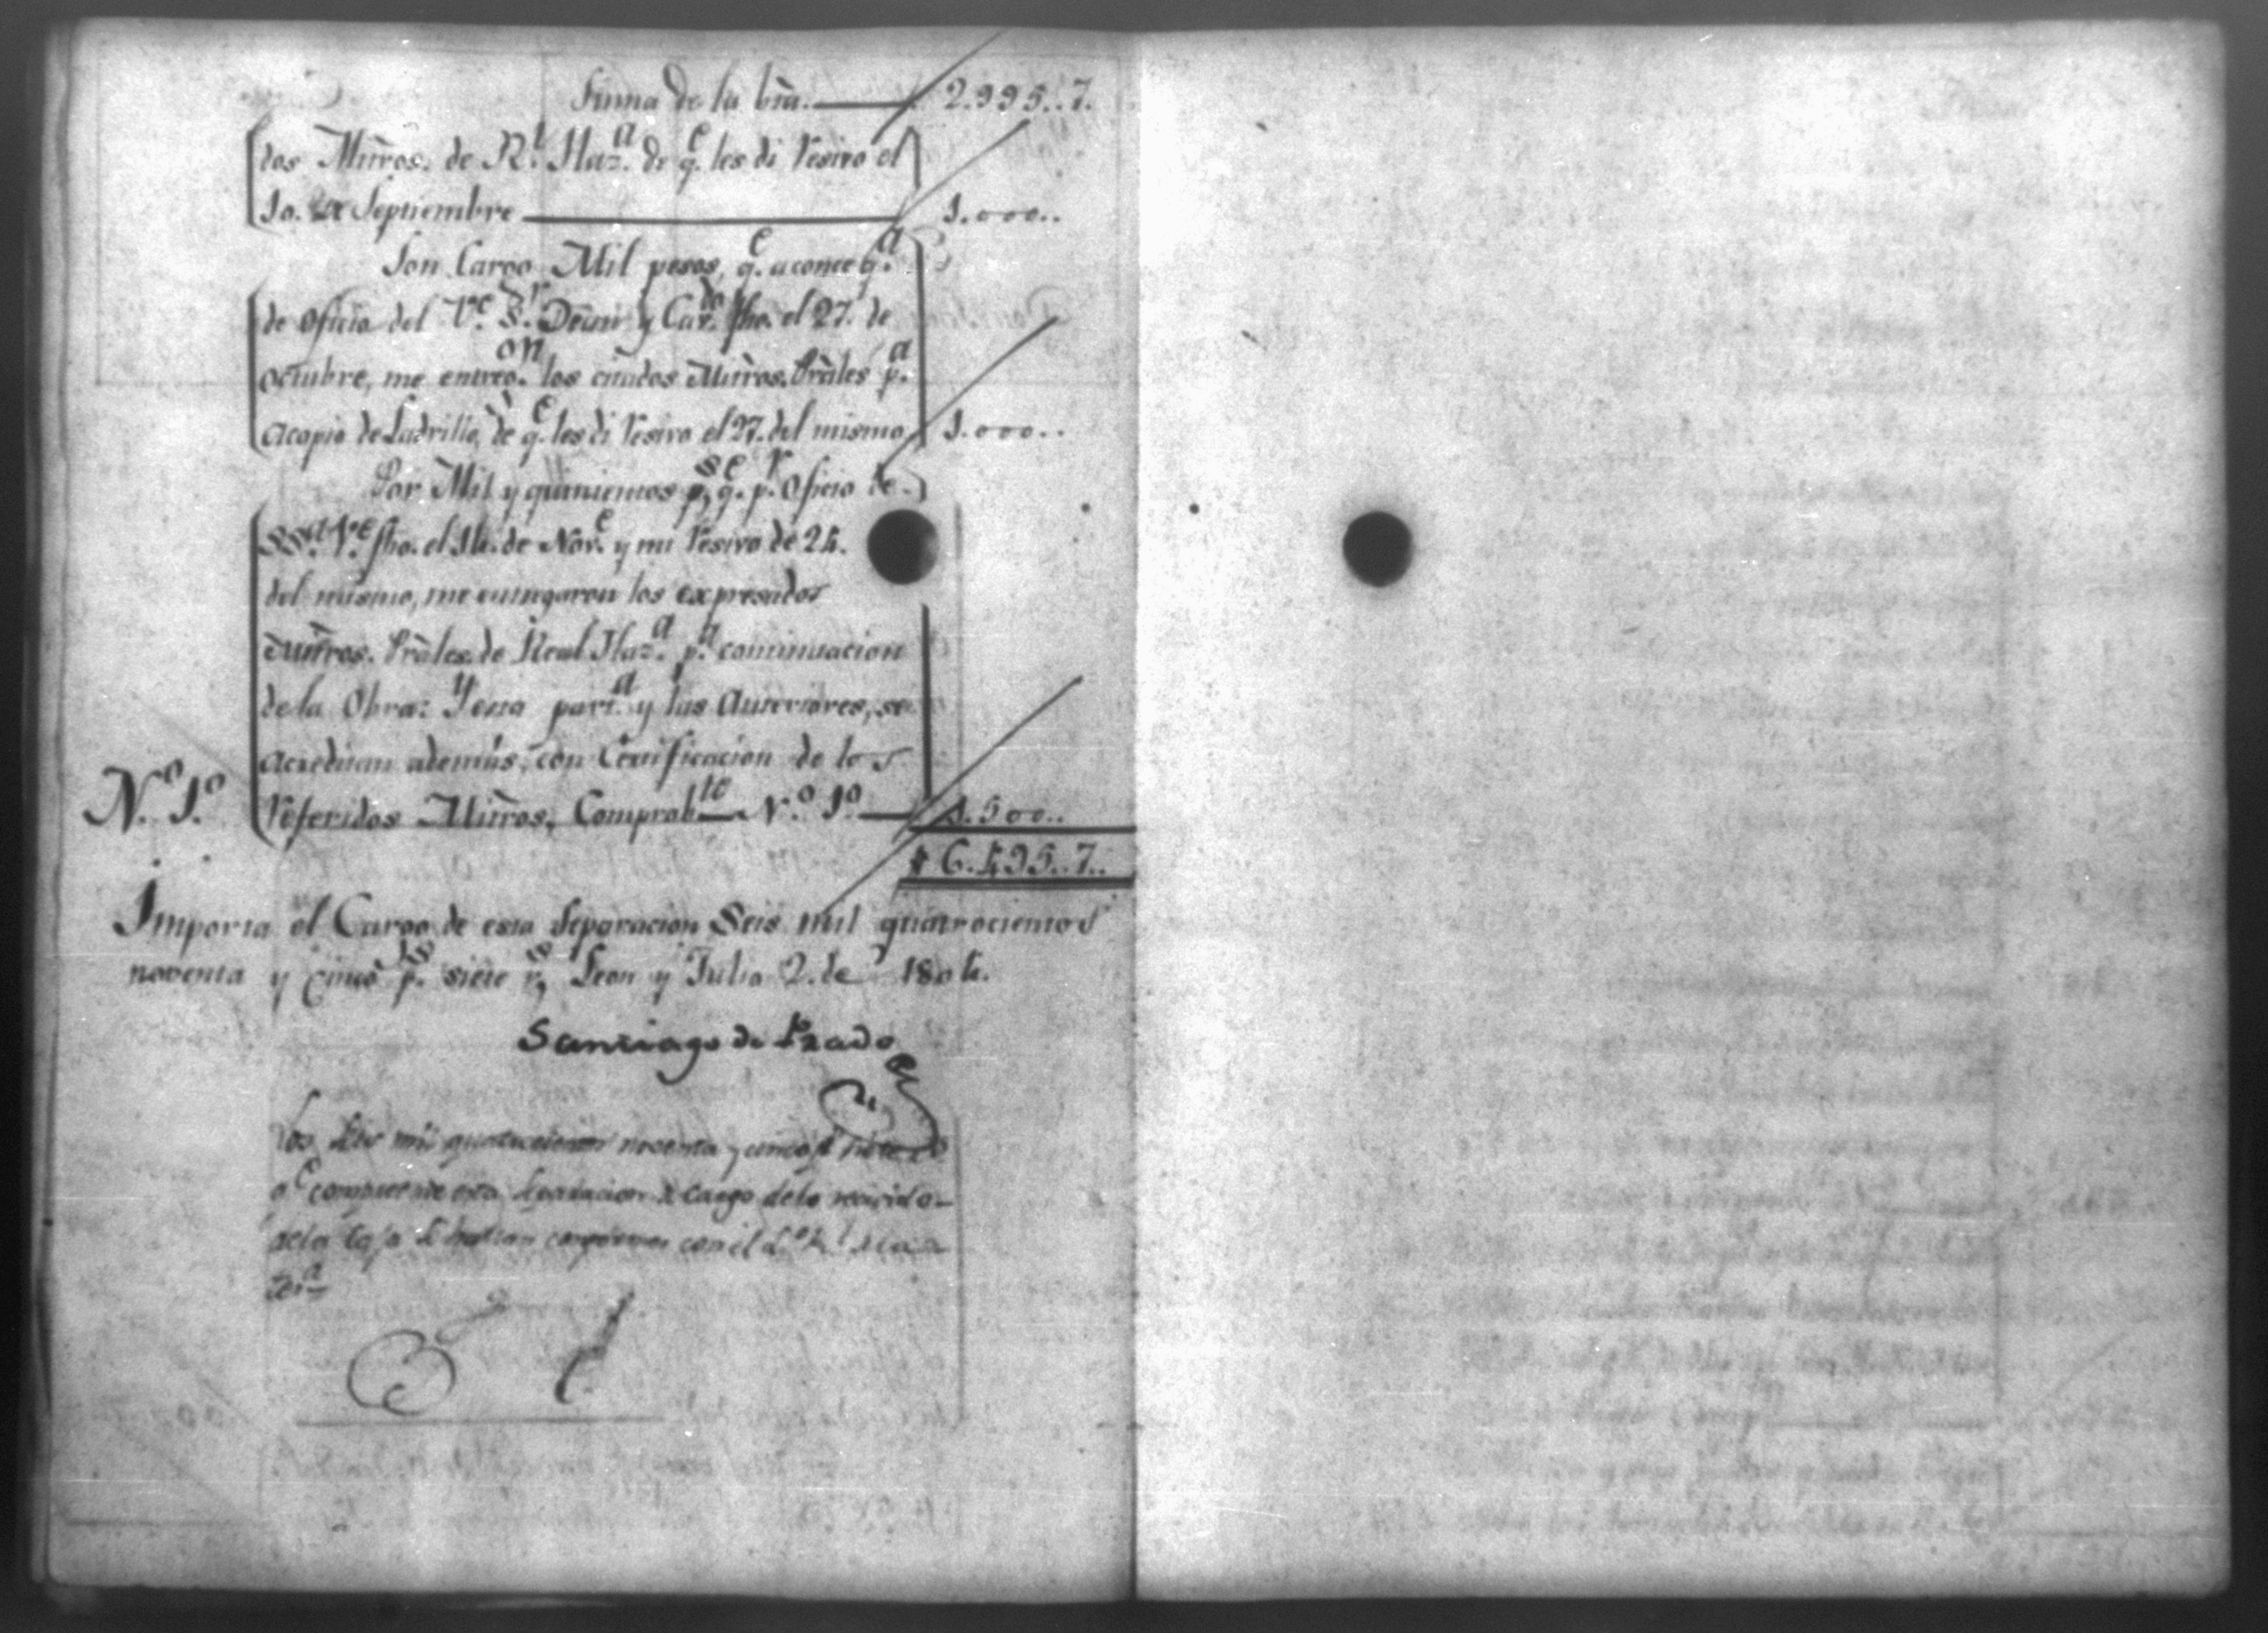 Suma de la bta. 2.995..7.
dos Miñros. de R.l Haz.a de q.e les di resivo el
10. de Septiembre 1.000..
Son Cargo Mil pesos, q.e a conseq.a
de oficio del V.e S.r Dean y Cav.do fho. el 27. de
octubre, me entreg.on los citados Miñros. Prales p.a
acopio de Ladrillo, de q.e les di resivo el 27. del mismo 1.000..
Por Mil y quinientos p.s q.e p.r oficio de
SS.a V.e fho. el 14. de Nov.e y mi resivo de 24.
del mismo, me entregaron los expresados
Miñros. Prales. de Real Haz.a p.a continuacion
de la Obra: Y esta part.a y las Anteriores, se
acreditan además, con Certificacion de los
N.o 1.o referidos Miñros, Comprob.te N.o 1.o 1.500..
$ 6.495..7..
Importa el Cargo de esta Separacion Seis mil quatrocientos
noventa y cinco p.s siete r.s Leon y Julio 2. de 1804.
Santiago de Prado
Los Seis mil quatrocientos noventa y cinco p.s siete r.s
q.e comprende esta Separacion de Cargo de lo recivido
de la Caja se hallan conformes con el L.o R.l